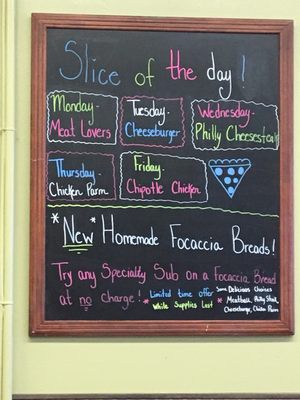 Slice of the day!
Monday-
Meat Lovers
Tuesday-
Cheeseburger
Wednesday-
Philly Cheesesteak
Thursday-
Chicken Parm
Friday-
Chipotle Chicken
*New* Homemade Focaccia Breads!
Try any Specialty Sub on a Focaccia Bread
at no charge!
* Limited time offer
while Supplies Last
Some Delicious Choices
* Meatball, Philly Steak,
Cheeseburger, Chicken Parm